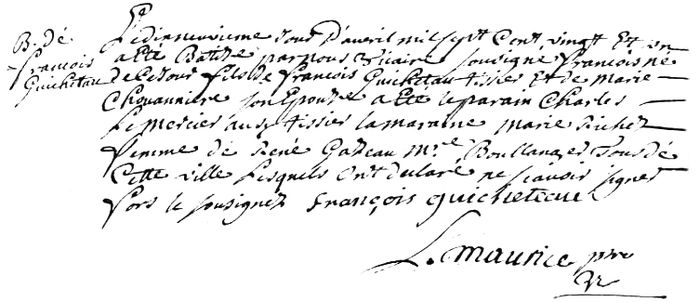 B. de
francois
Guichetau
Le dixneuvieme Jour Daveril mil sept Cent vingt Et un
a Eté Batizé par nous vicaire sousigne francois né
de Ce Jour fils de francois Guichetau tissier Et de marie
Chouanniere son Epouse a Eté le parain Charles
Le mercier aussy tissier la maraine marie Richer
femme de René Gateau Mre Boullanger tous de
Cette ville Lesquels ont declaré ne scavoir signer
fors le sousigné françois guicheteau
L. maurice pre